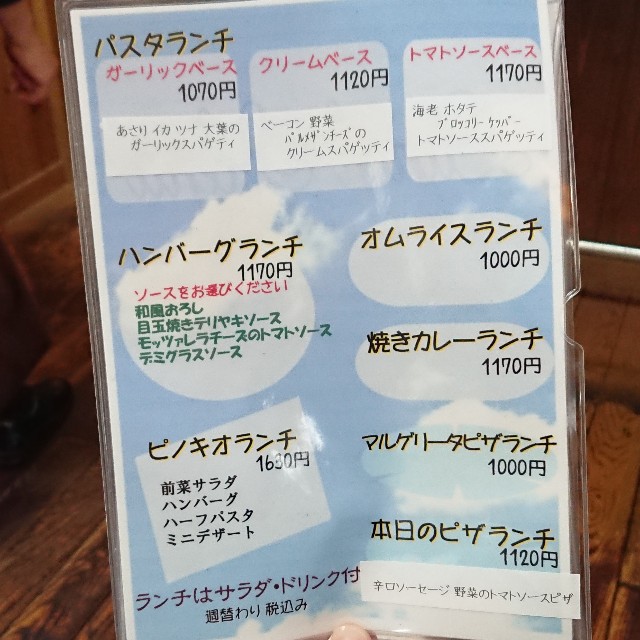 パスタランチ
ガーリックベース
1070円
あさり イカ ツナ 大葉の
ガーリックスパゲティ
クリームベース
1120円
ベーコン 野菜
パルメザンチーズの
クリームスパゲッティ
トマトソースベース
1170円
海老 ホタテ
ブロッコリー ケッパー
トマトソーススパゲッティ
ハンバーグランチ
1170円
ソースをお選びください
和風おろし
目玉焼きテリヤキソース
モッツァレラチーズのトマトソース
デミグラスソース
オムライスランチ
1000円
焼きカレーランチ
1170円
ピノキオランチ
1630円
前菜サラダ
ハンバーグ
ハーフパスタ
ミニデザート
マルゲリータピザランチ
1000円
本日のピザランチ
1120円
辛口ソーセージ 野菜のトマトソースピザ
ランチはサラダ・ドリンク付
週替わり 税込み